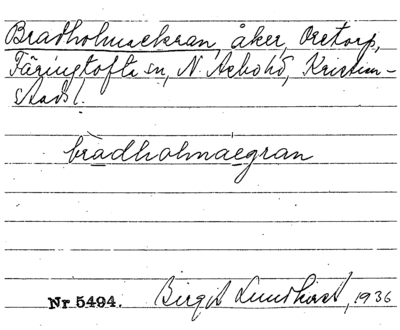 Bradholmaekran, åker, Oretorp,
Färingtofta sn, N. Åsbo hd, Kristian-
stads l.
bradholmaegran
Nr 5494. Birgit Lundkvist, 1936